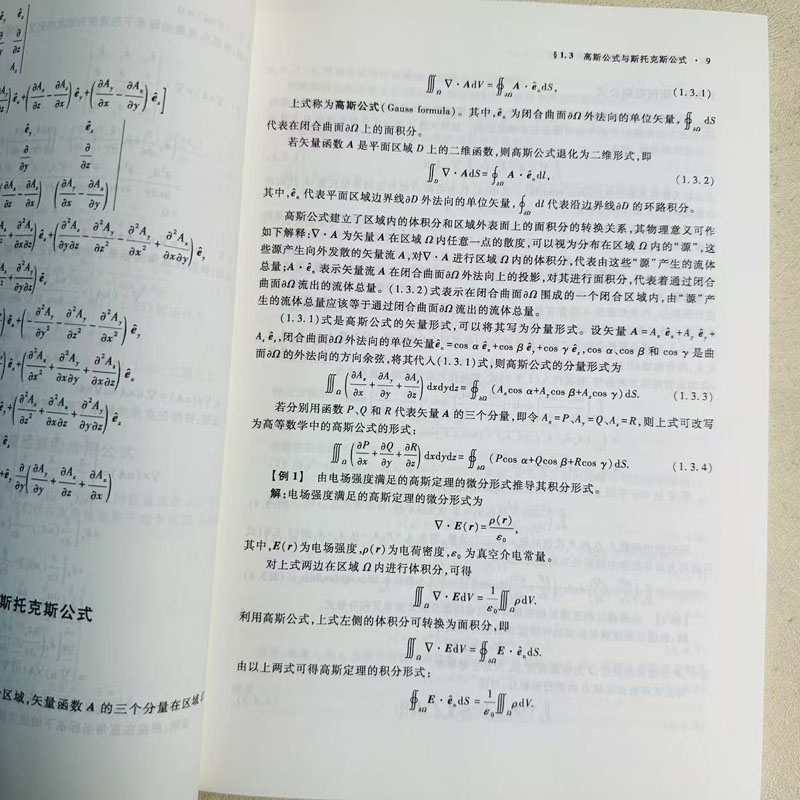 斯托克斯公式
区域,矢量函数 A 的三个分量在区域
§1.3 高斯公式与斯托克斯公式 · 9
∭_Ω ∇·AdV = ∯_∂Ω A·ê_n dS, (1.3.1)
上式称为高斯公式(Gauss formula)。其中,ê_n 为闭合曲面∂Ω外法向的单位矢量,∯_∂Ω dS
代表在闭合曲面∂Ω上的面积分。
若矢量函数 A 是平面区域 D 上的二维函数,则高斯公式退化为二维形式,即
∬_D ∇·AdS = ∮_∂D A·ê_n dl, (1.3.2)
其中,ê_n 代表平面区域边界线∂D外法向的单位矢量,∮_∂D dl代表沿边界线∂D 的环路积分。
高斯公式建立了区域内的体积分和区域外表面上的面积分的转换关系,其物理意义可作
如下解释:∇·A 为矢量 A 在区域 Ω 内任意一点的散度,可以视为分布在区域 Ω 内的“源”,这
些源产生向外发散的矢量流 A,对∇·A 进行区域 Ω 内的体积分,代表由这些“源”产生的流体
总量;A·ê_n 表示矢量流 A 在闭合曲面∂Ω外法向上的投影,对其进行面积分,代表着通过闭合
曲面∂Ω流出的流体总量。(1.3.2)式表示在闭合曲面∂Ω围成的一个闭合区域内,由“源”产
生的流体总量应该等于通过闭合曲面∂Ω流出的流体总量。
(1.3.1)式是高斯公式的矢量形式,可以将其写为分量形式。设矢量 A=A_x ê_x+A_y ê_y+
A_z ê_z,闭合曲面∂Ω外法向的单位矢量ê_n=cos α ê_x+cos β ê_y+cos γ ê_z,cos α、cos β 和 cos γ 是曲
面∂Ω的外法向的方向余弦,将其代入(1.3.1)式,则高斯公式的分量形式为
∭_Ω (∂A_x/∂x+∂A_y/∂y+∂A_z/∂z) dxdydz = ∯_∂Ω (A_x cos α+A_y cos β+A_z cos γ) dS. (1.3.3)
若分别用函数 P、Q 和 R 代表矢量 A 的三个分量,即令 A_x=P、A_y=Q、A_z=R,则上式可改写
为高等数学中的高斯公式的形式:
∭_Ω (∂P/∂x+∂Q/∂y+∂R/∂z) dxdydz = ∯_∂Ω (Pcos α+Qcos β+Rcos γ) dS. (1.3.4)
【例1】 由电场强度满足的高斯定理的微分形式推导其积分形式。
解:电场强度满足的高斯定理的微分形式为
∇·E(r)=ρ(r)/ε_0,
其中,E(r)为电场强度,ρ(r)为电荷密度,ε_0 为真空介电常量。
对上式两边在区域 Ω 内进行体积分,可得
∭_Ω ∇·EdV = 1/ε_0 ∭_Ω ρdV.
利用高斯公式,上式左侧的体积分可转换为面积分,即
∭_Ω ∇·EdV = ∯_∂Ω E·ê_n dS.
由以上两式可得高斯定理的积分形式:
∯_∂Ω E·ê_n dS = 1/ε_0 ∭_Ω ρdV.